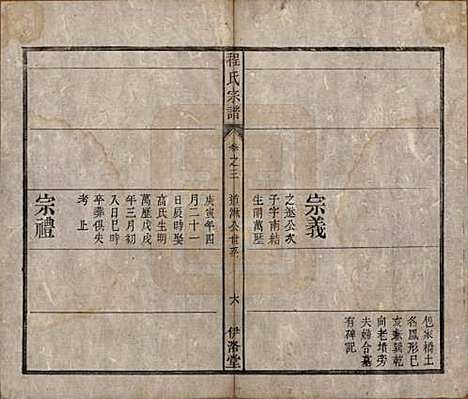 包家橋土
名鳳形巳
亥兼巽乾
向老墳旁
夫婦合墓
有碑記
宗義
之遜公次
子字南結
生明萬歷
程氏宗譜
卷之三
道淋公世系
六
伊洛堂
庚寅年四
月二十一
日辰時娶
高氏生明
萬歷戊戌
年三月初
八日巳時
卒葬俱失
考止
宗禮